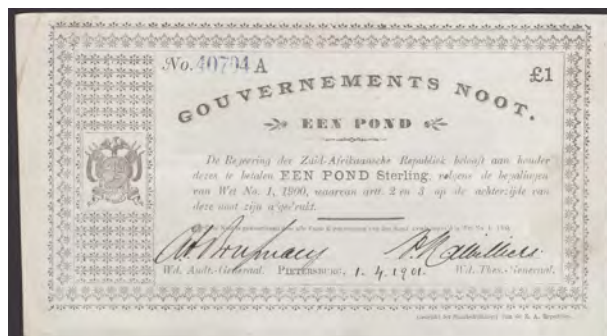 No. 40794 A
£1
GOUVERNEMENTS NOOT.
EEN POND
De Regeering der Zuid-Afrikaansche Republiek belooft aan houder
dezes te betalen EEN POND Sterling, volgens de bepalingen
van Wet No. 1, 1900, waarvan artt. 2 en 3 op de achterzijde van
deze noot zijn afgedrukt.
Wd. Audt.-Generaal. PIETERSBURG, 1. 4. 1901. Wd. Thes.-Generaal.